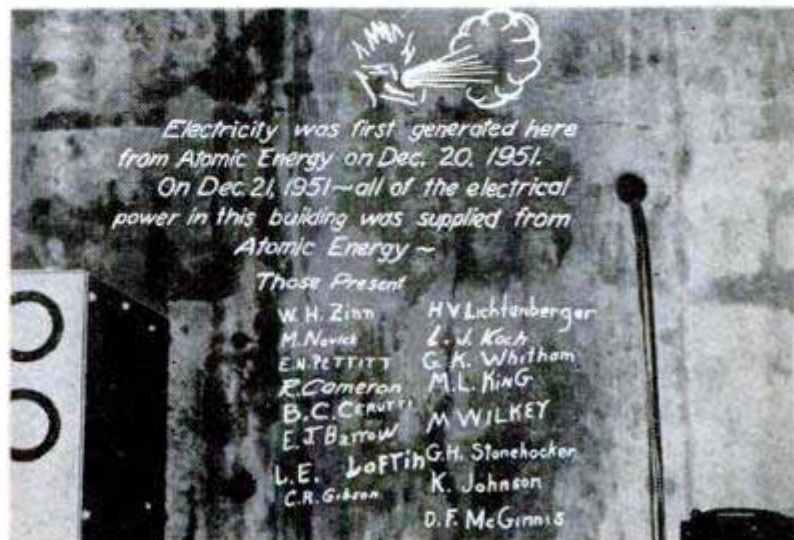 Electricity was first generated here
from Atomic Energy on Dec. 20, 1951.
On Dec. 21, 1951 ~ all of the electrical
power in this building was supplied from
Atomic Energy ~
Those Present
W. H. Zinn
M. Novick
E. N. PETTITT
R. Cameron
B. C. CERUTTI
E. J Barrow
L. E. LoFTin
C. R. Gibson
H V Lichtenberger
L. J. Koch
G. K. Whitham
M. L. KinG
M WILKEY
G. H. Stonehocker
K. Johnson
D. F. McGinnis